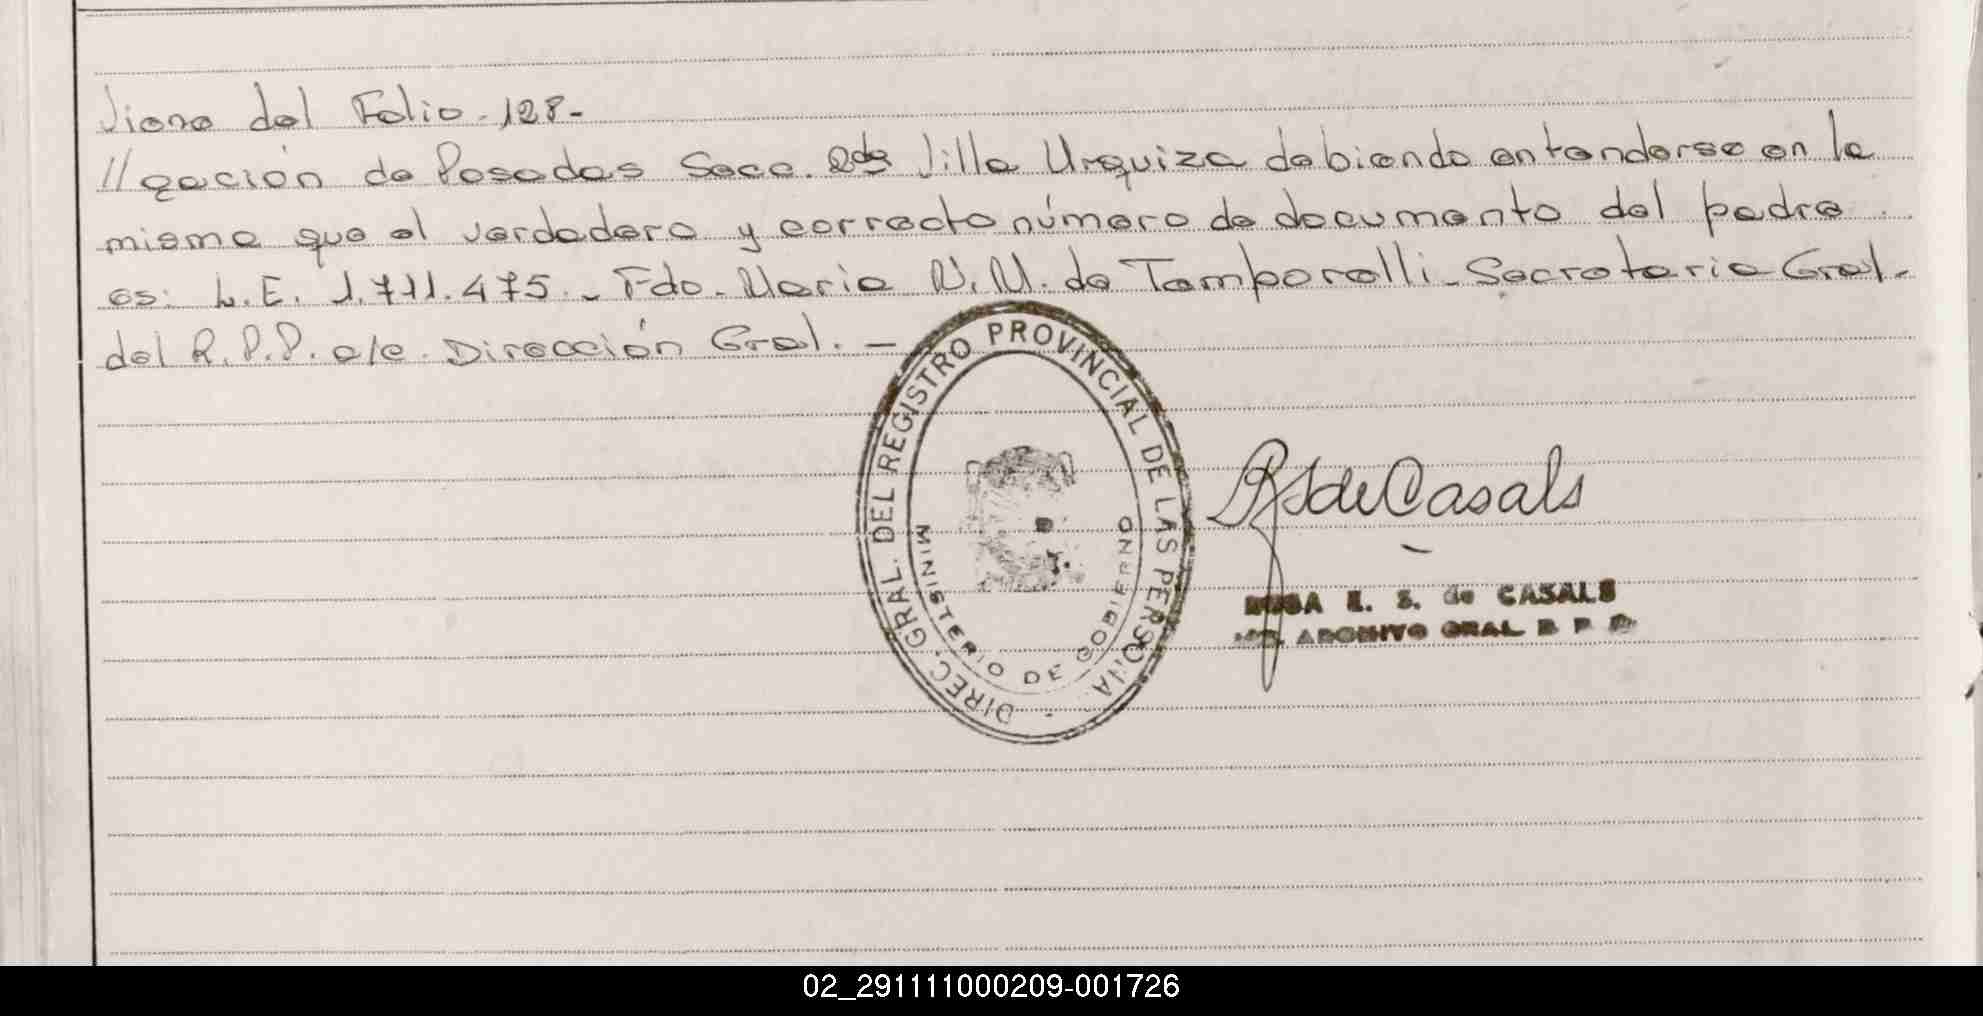 Viene del Folio-128-
//gación de Posadas Secc. 2da Villa Urquiza debiendo entenderse en la
misma que el verdadero y correcto número de documento del padre
es: L.E. 1.711.475.- Fdo. Maria N. M. de Temporelli- Secretaria Gral.
del R.P.P. a/c. Dirección Gral. —
DIREC. GRAL. DEL REGISTRO PROVINCIAL DE LAS PERSONA
MINISTERIO DE GOBIERNO
de Casals
ROSA E. S. de CASALS
ARCHIVO GRAL R P P
02_291111000209-001726